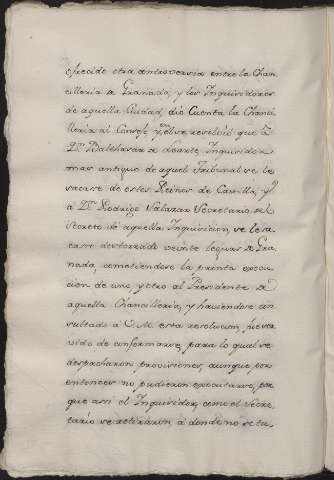 ofrecido otra controversia entre la Chan
cilleria de Granada, y los Inquisidores
de aquella Ciudad, dió Cuenta la Chanci
lleria al Consejo, y en el se resolvió que à
Dn. Balthasar de Loarte, Inquisidor
mas antiguo de aquel Tribunal se le
sacase de estos Reinos de Castilla, y q
à Dn. Rodrigo Salazar Secretario del
secreto de aquella Inquisicion, se le sa
case desterrado veinte leguas de Gra
nada, cometiendose la pronta execu
cion de uno y otro al Presidente de
aquella Chancilleria, y haviendose con
sultado à V.M. esta resolucion, fue ser
vido de conformarse, para lo qual se
despacharon provisiones, aunque por
entonces no pudieron executarse, por
que assi el Inquisidor, como el Secre
tario se retiraron à donde no se tu